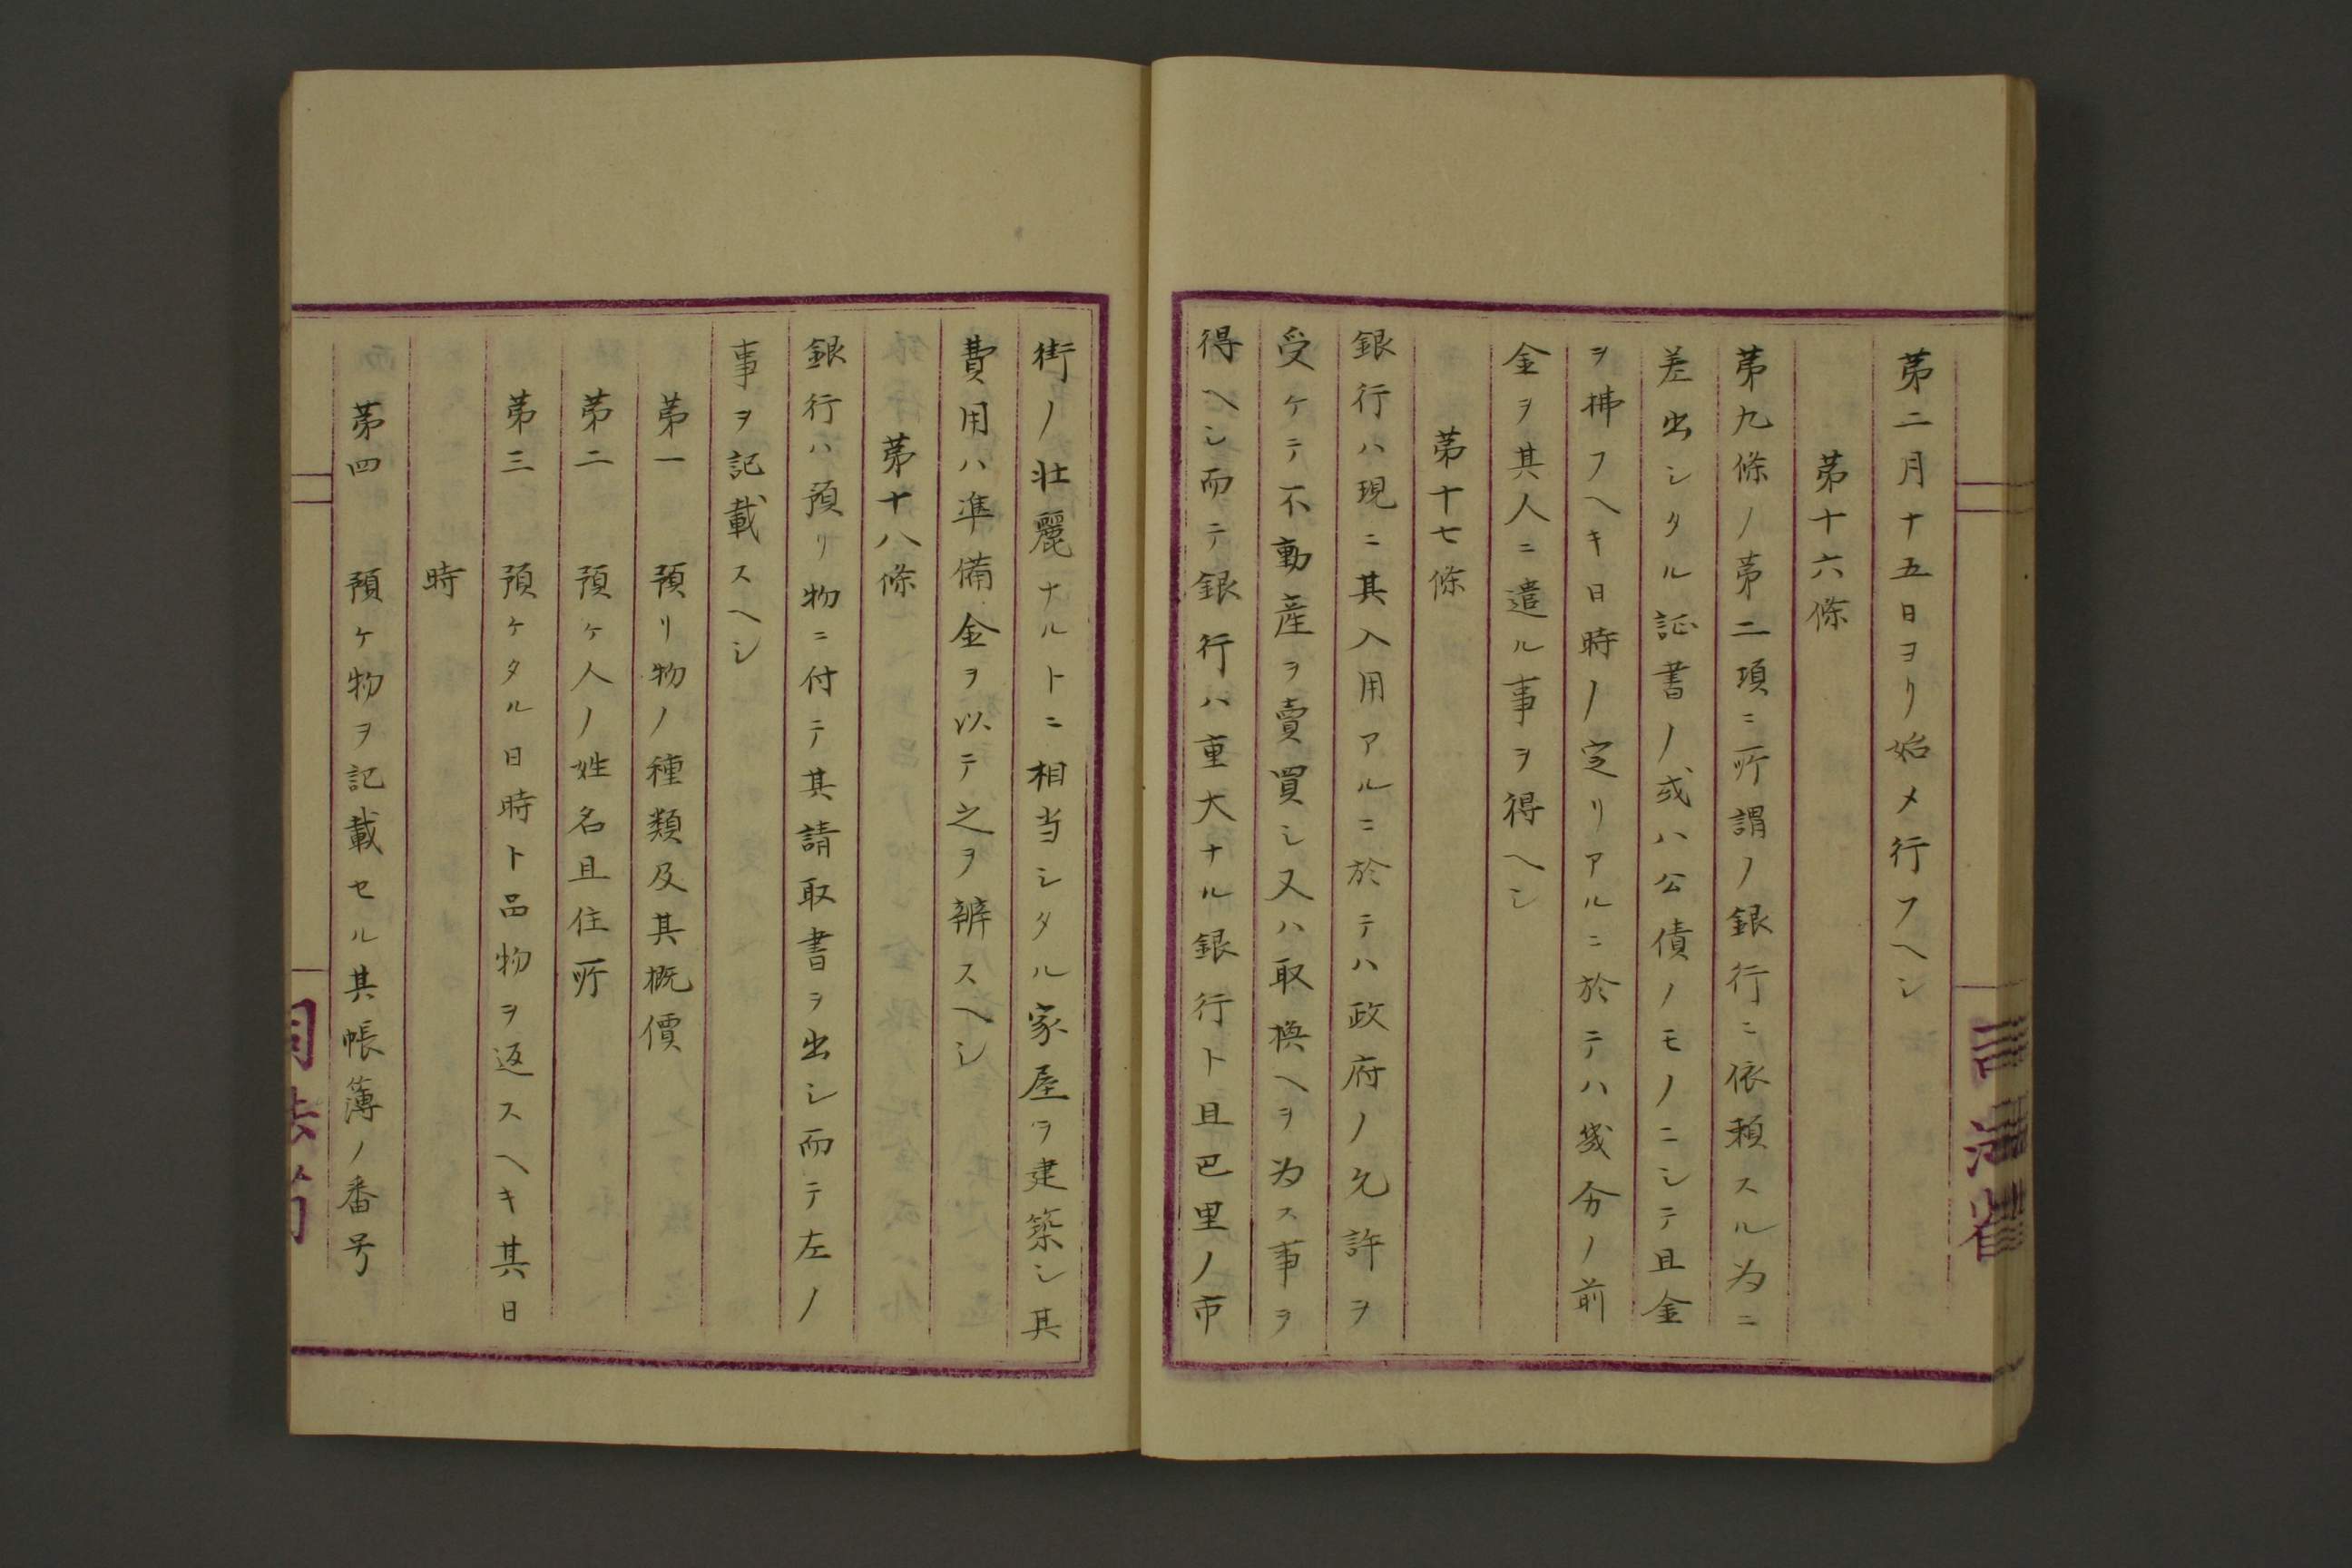 第二月十五日ヨリ始メ行フヘシ
第十六條
第九條ノ第二項ニ所謂ノ銀行ニ依頼スル為ニ
差出シタル証書ノ或ハ公債ノモノニシテ且金
ヲ拂フヘキ日時ノ定リアルニ於テハ幾分ノ前
金ヲ其人ニ遣ル事ヲ得ヘシ
第十七條
銀行ハ現ニ其入用アルニ於テハ政府ノ允許ヲ
受ケテ不動産ヲ賣買シ又ハ取換ヘヲ為ス事ヲ
得ヘシ而テ銀行ハ重大ナル銀行ト且巴里ノ市
街ノ壮麗ナルトニ相当シタル家屋ヲ建築シ其
費用ハ準備金ヲ以テ之ヲ辨スヘシ
第十八條
銀行ハ預リ物ニ付テ其請取書ヲ出シ而テ左ノ
事ヲ記載スヘシ
第一 預リ物ノ種類及其概價
第二 預ケ人ノ姓名且住所
第三 預ケタル日時ト品物ヲ返スヘキ其日
時
第四 預ケ物ヲ記載セル其帳簿ノ番号
司法省